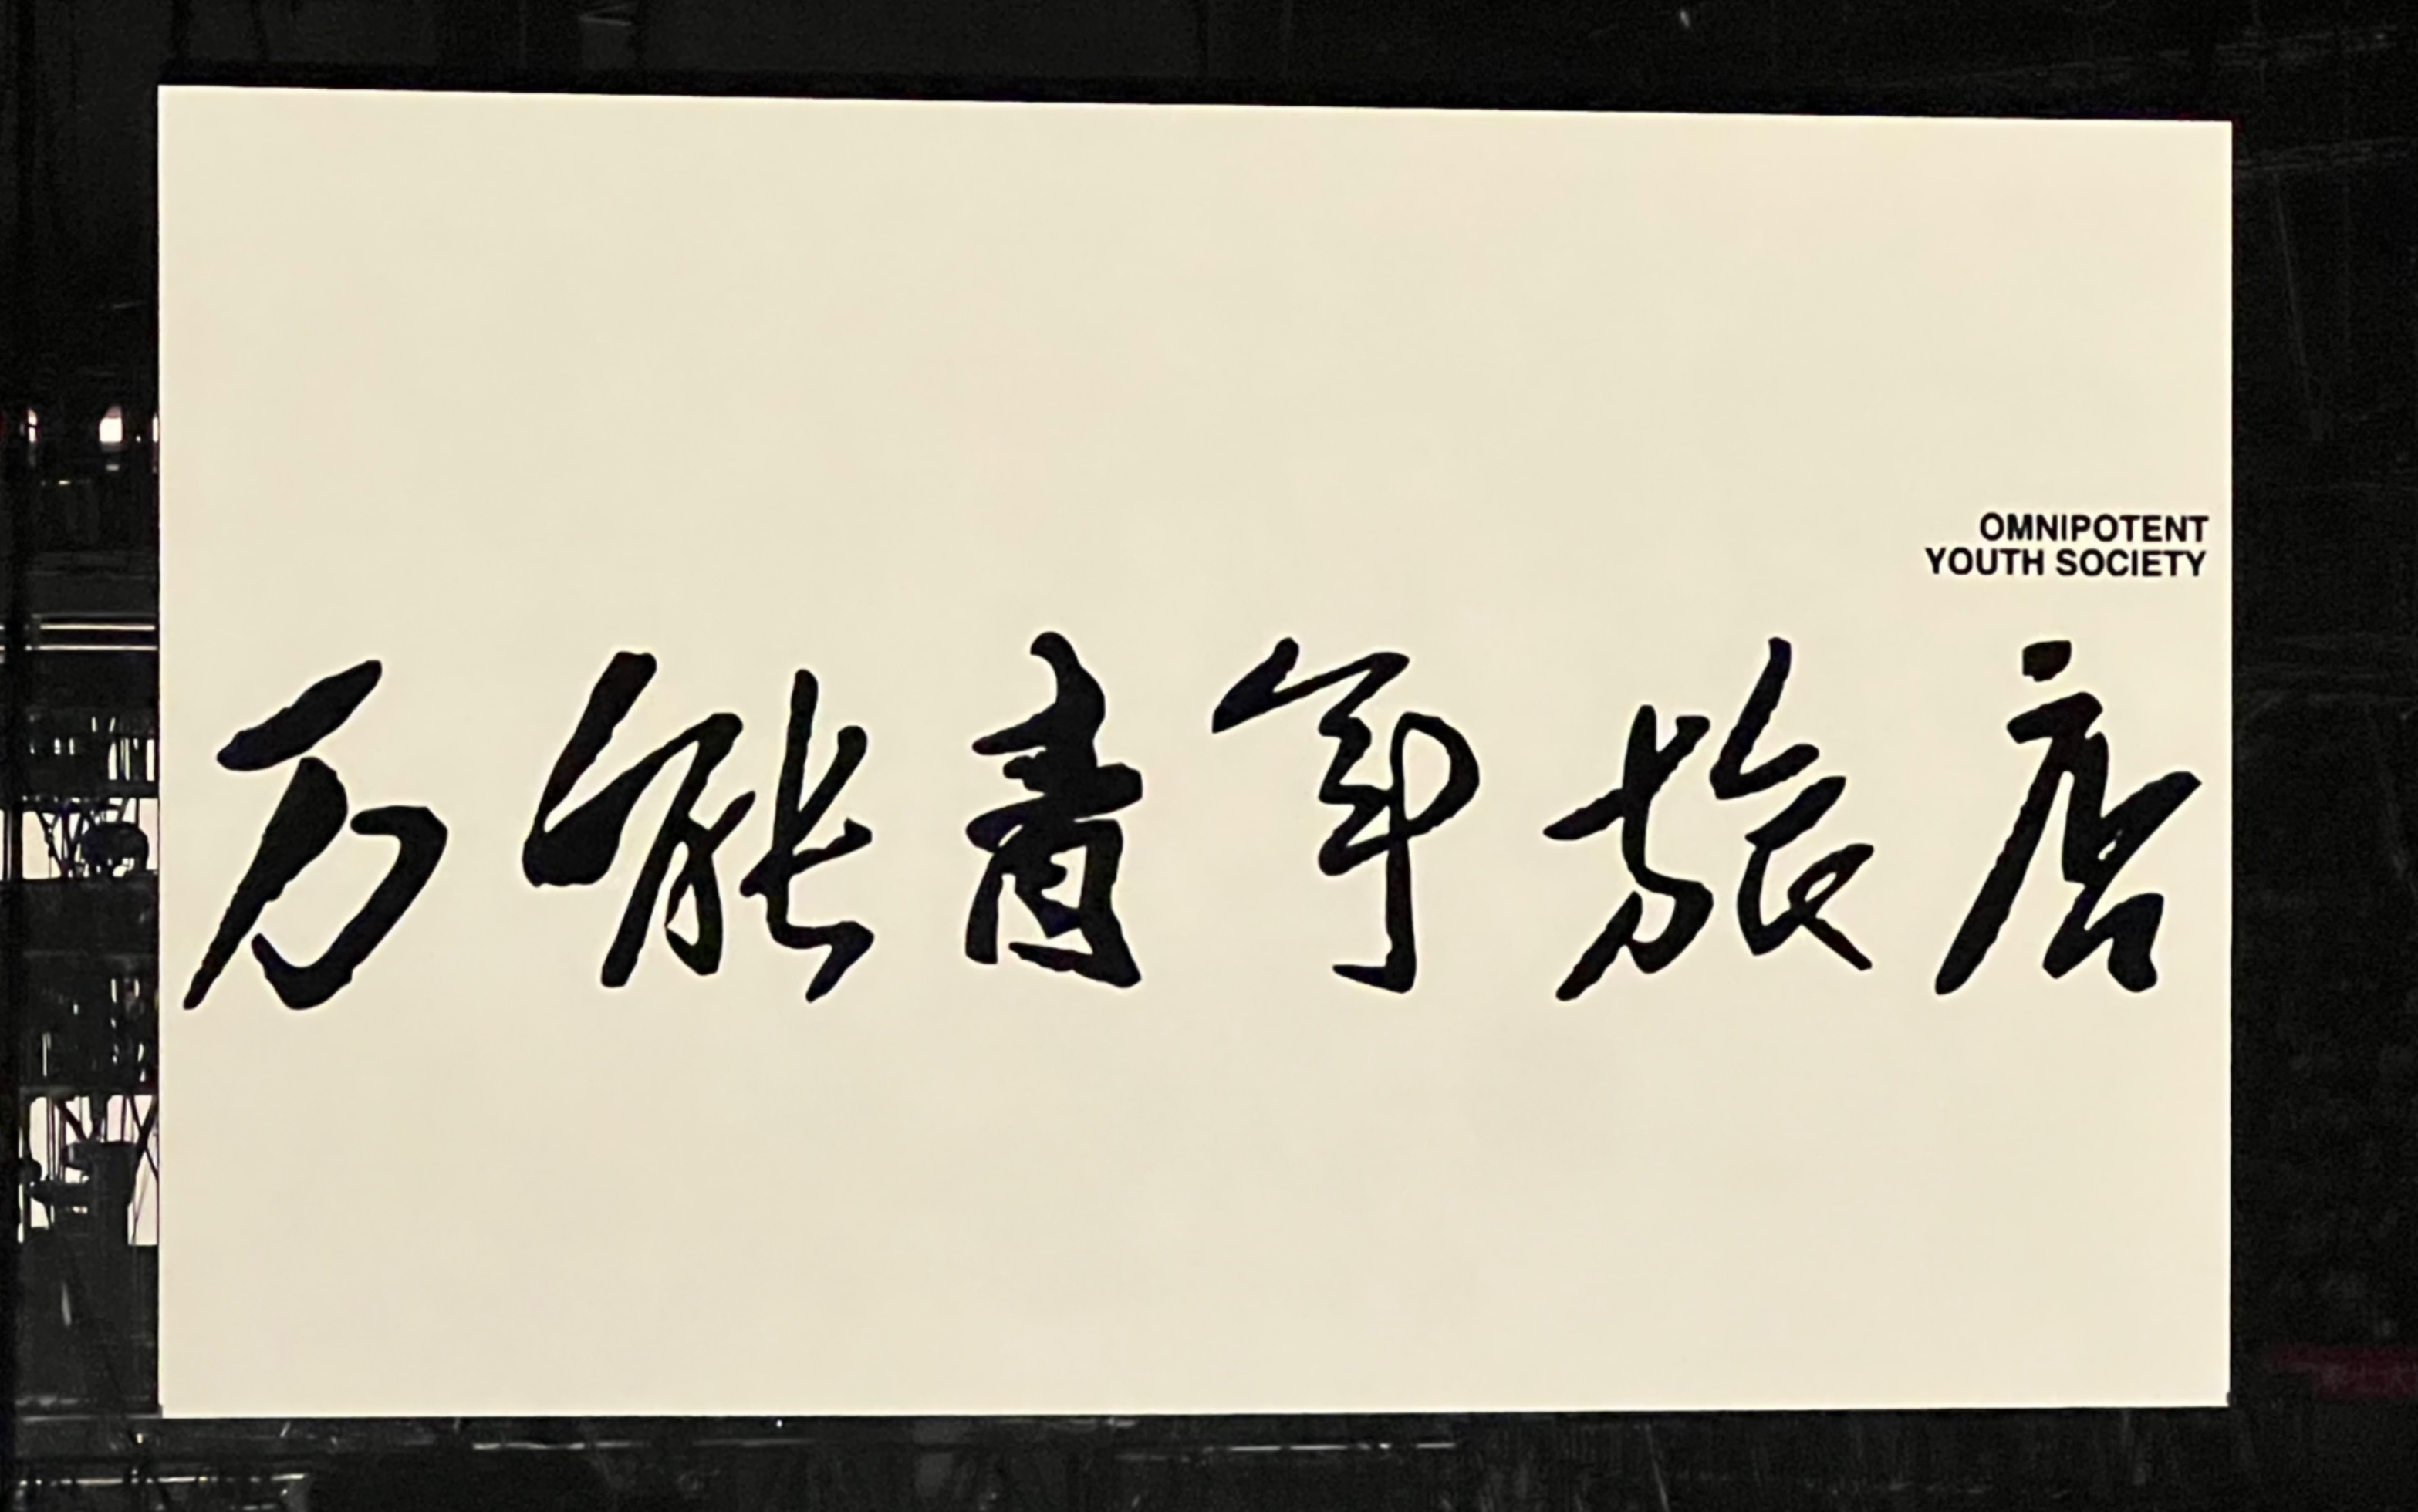 OMNIPOTENT
YOUTH SOCIETY
万能青年旅店